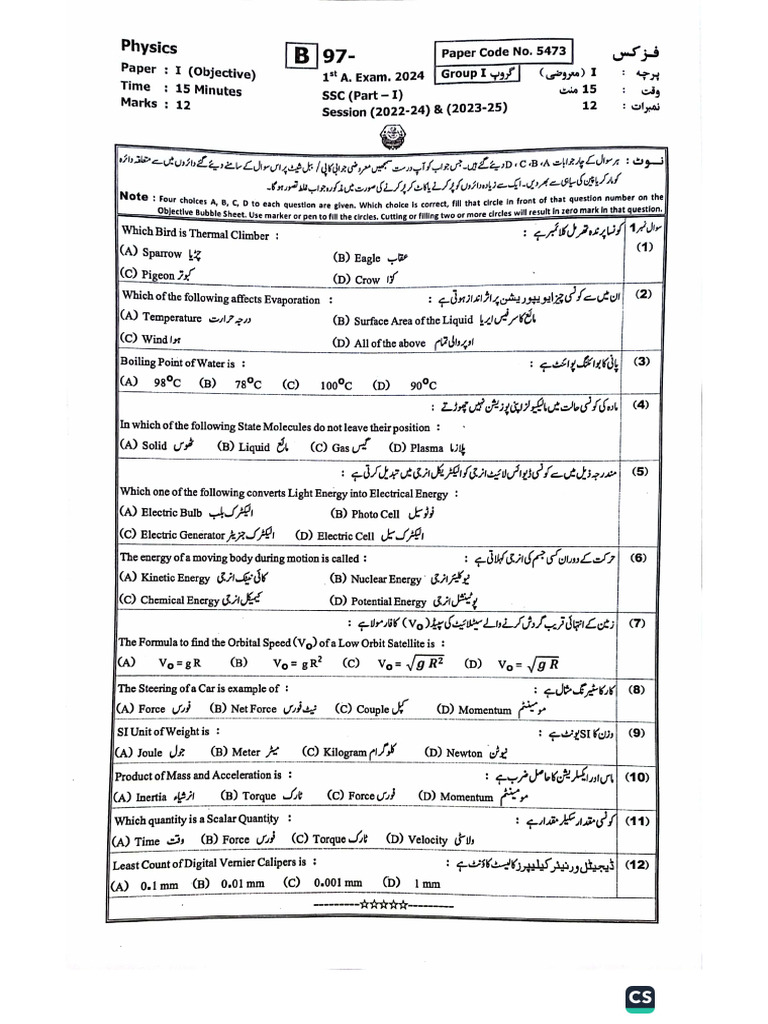 Physics
B 97-
Paper Code No. 5473
فزکس
Paper : I (Objective)
1st A. Exam. 2024
Group I گروپ I
پرچہ : I (معروضی)
Time : 15 Minutes
SSC (Part – I)
وقت : 15 منٹ
Marks : 12
Session (2022-24) & (2023-25)
نمبرات : 12
نوٹ : ہر سوال کے چار جوابات D ، C ، B ، A دیئے گئے ہیں۔ جس جواب کو آپ درست سمجھیں معروضی جوابی کاپی / ببل شیٹ پر اس سوال کے سامنے دیئے گئے دائروں میں سے متعلقہ دائرہ
کو مارکر یا پین کی سیاہی سے بھر دیں۔ ایک سے زیادہ دائروں کو پُر کرنے یا کاٹ کر پُر کرنے کی صورت میں مذکورہ جواب غلط تصور ہوگا۔
Note : Four choices A, B, C, D to each question are given. Which choice is correct, fill that circle in front of that question number on the
Objective Bubble Sheet. Use marker or pen to fill the circles. Cutting or filling two or more circles will result in zero mark in that question.
Which Bird is Thermal Climber : کونسا پرندہ تھرمل کلائمبر ہے : سوال نمبر 1
(1)
(A) Sparrow چڑیا (B) Eagle عقاب
(C) Pigeon کبوتر (D) Crow کوّا
Which of the following affects Evaporation : ان میں سے کونسی چیز ایویپوریشن پر اثر انداز ہوتی ہے : (2)
(A) Temperature درجہ حرارت (B) Surface Area of the Liquid مائع کا سرفیس ایریا
(C) Wind ہوا (D) All of the above اوپر والی تمام
Boiling Point of Water is : پانی کا بوائلنگ پوائنٹ ہے : (3)
(A) 98°C (B) 78°C (C) 100°C (D) 90°C
مادہ کی کونسی حالت میں مالیکیولز اپنی پوزیشن نہیں چھوڑتے : (4)
In which of the following State Molecules do not leave their position :
(A) Solid ٹھوس (B) Liquid مائع (C) Gas گیس (D) Plasma پلازما
مندرجہ ذیل میں سے کونسی ڈیوائس لائیٹ انرجی کو الیکٹریکل انرجی میں تبدیل کرتی ہے : (5)
Which one of the following converts Light Energy into Electrical Energy :
(A) Electric Bulb الیکٹرک بلب (B) Photo Cell فوٹو سیل
(C) Electric Generator الیکٹرک جنریٹر (D) Electric Cell الیکٹرک سیل
The energy of a moving body during motion is called : حرکت کے دوران کسی جسم کی انرجی کہلاتی ہے : (6)
(A) Kinetic Energy کائی نیٹک انرجی (B) Nuclear Energy نیوکلیئر انرجی
(C) Chemical Energy کیمیکل انرجی (D) Potential Energy پوٹینشل انرجی
زمین کے انتہائی قریب گردش کرنے والے سیٹلائیٹ کی سپیڈ (Vo) کا فارمولا ہے : (7)
The Formula to find the Orbital Speed (Vo) of a Low Orbit Satellite is :
(A) Vo = gR (B) Vo = gR² (C) Vo = √g R² (D) Vo = √g R
The Steering of a Car is example of : کار کا سٹیرنگ مثال ہے : (8)
(A) Force فورس (B) Net Force نیٹ فورس (C) Couple کپل (D) Momentum مومینٹم
SI Unit of Weight is : وزن کا SI یونٹ ہے : (9)
(A) Joule جول (B) Meter میٹر (C) Kilogram کلوگرام (D) Newton نیوٹن
Product of Mass and Acceleration is : ماس اور ایکسلریشن کا حاصل ضرب ہے : (10)
(A) Inertia انرشیاء (B) Torque ٹارک (C) Force فورس (D) Momentum مومینٹم
Which quantity is a Scalar Quantity : کونسی مقدار سکیلر مقدار ہے : (11)
(A) Time وقت (B) Force فورس (C) Torque ٹارک (D) Velocity ولاسٹی
Least Count of Digital Vernier Calipers is : ڈیجیٹل ورنیئر کیلیپرز کا لیسٹ کاؤنٹ ہے : (12)
(A) 0.1 mm (B) 0.01 mm (C) 0.001 mm (D) 1 mm
---------☆☆☆☆☆---------
CS